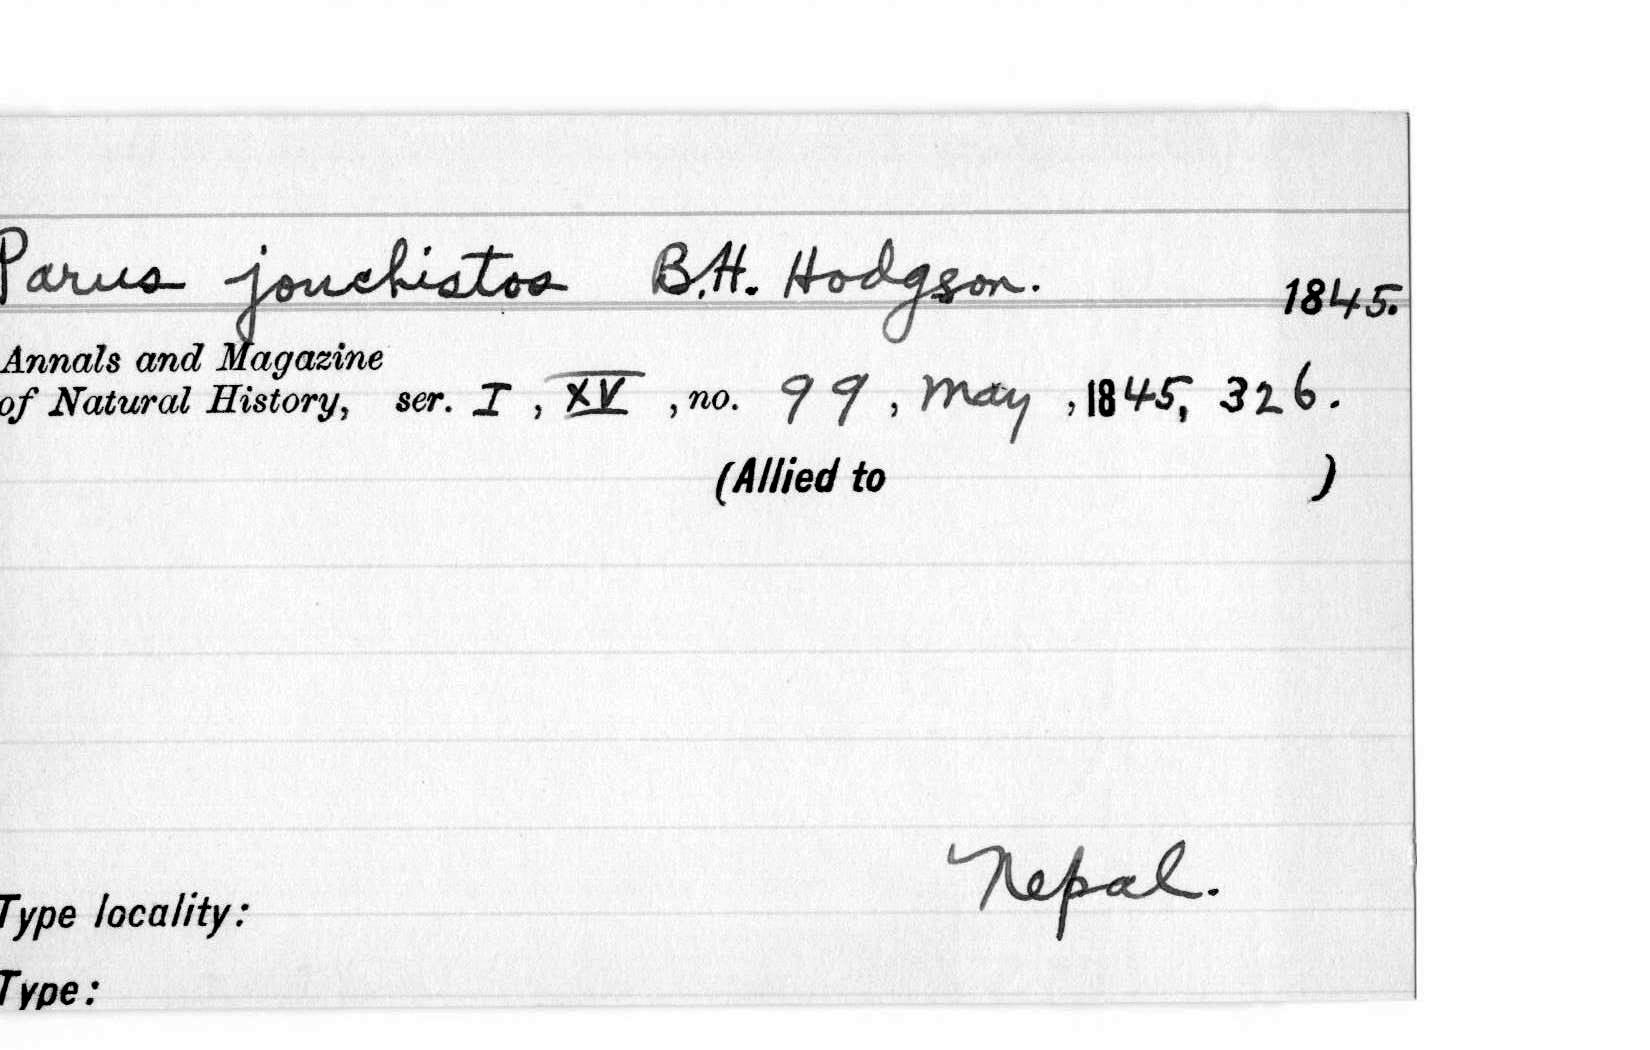 Parus jouchistos B.H. Hodgson. 1845.
Annals and Magazine
of Natural History, ser. I, XV, no. 99, May, 1845, 326.
(Allied to )
Nepal.
Type locality:
Type: